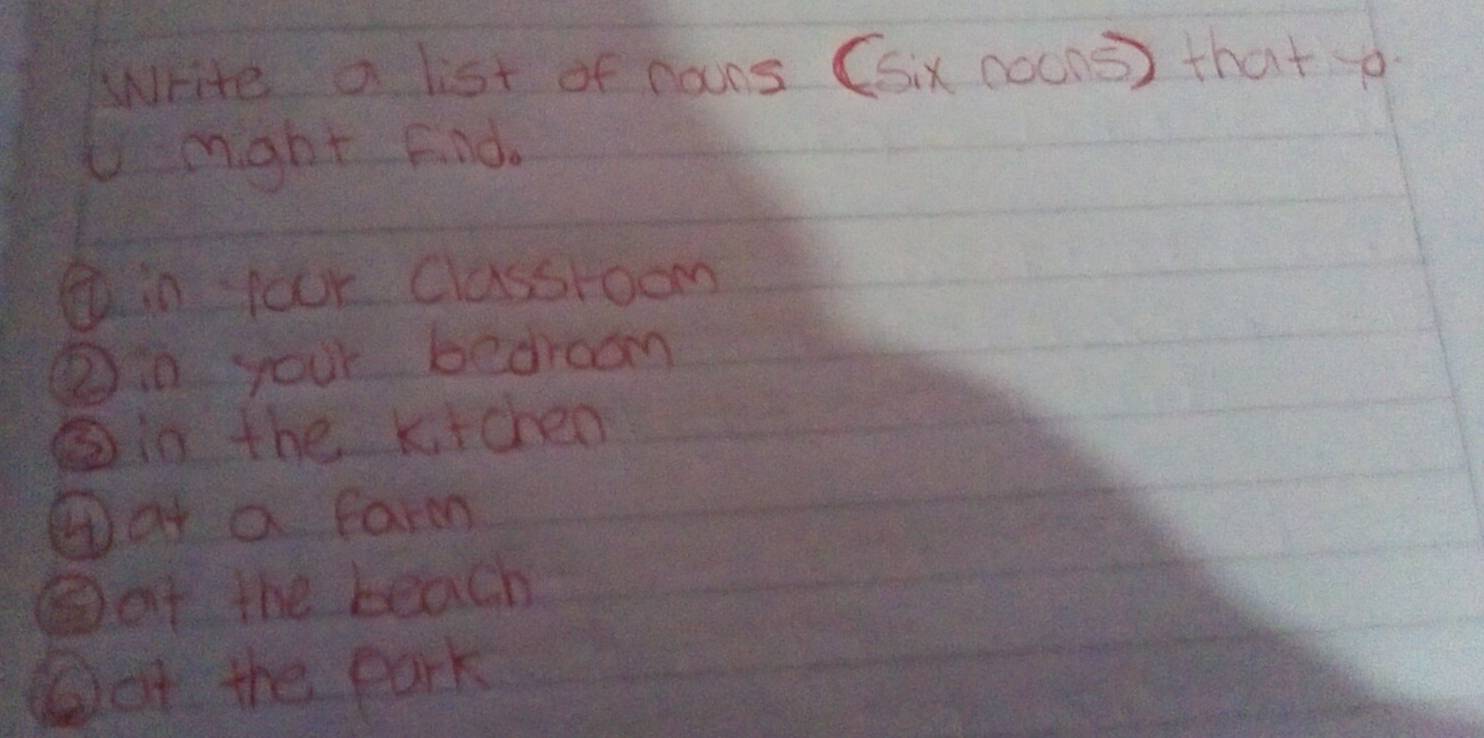 Write a list of nouns (six nouns) that yo
u might find.
① in your Classroom
② in your bedroom
③ in the kitchen
④ at a farm
⑤ at the beach
⑥ at the park